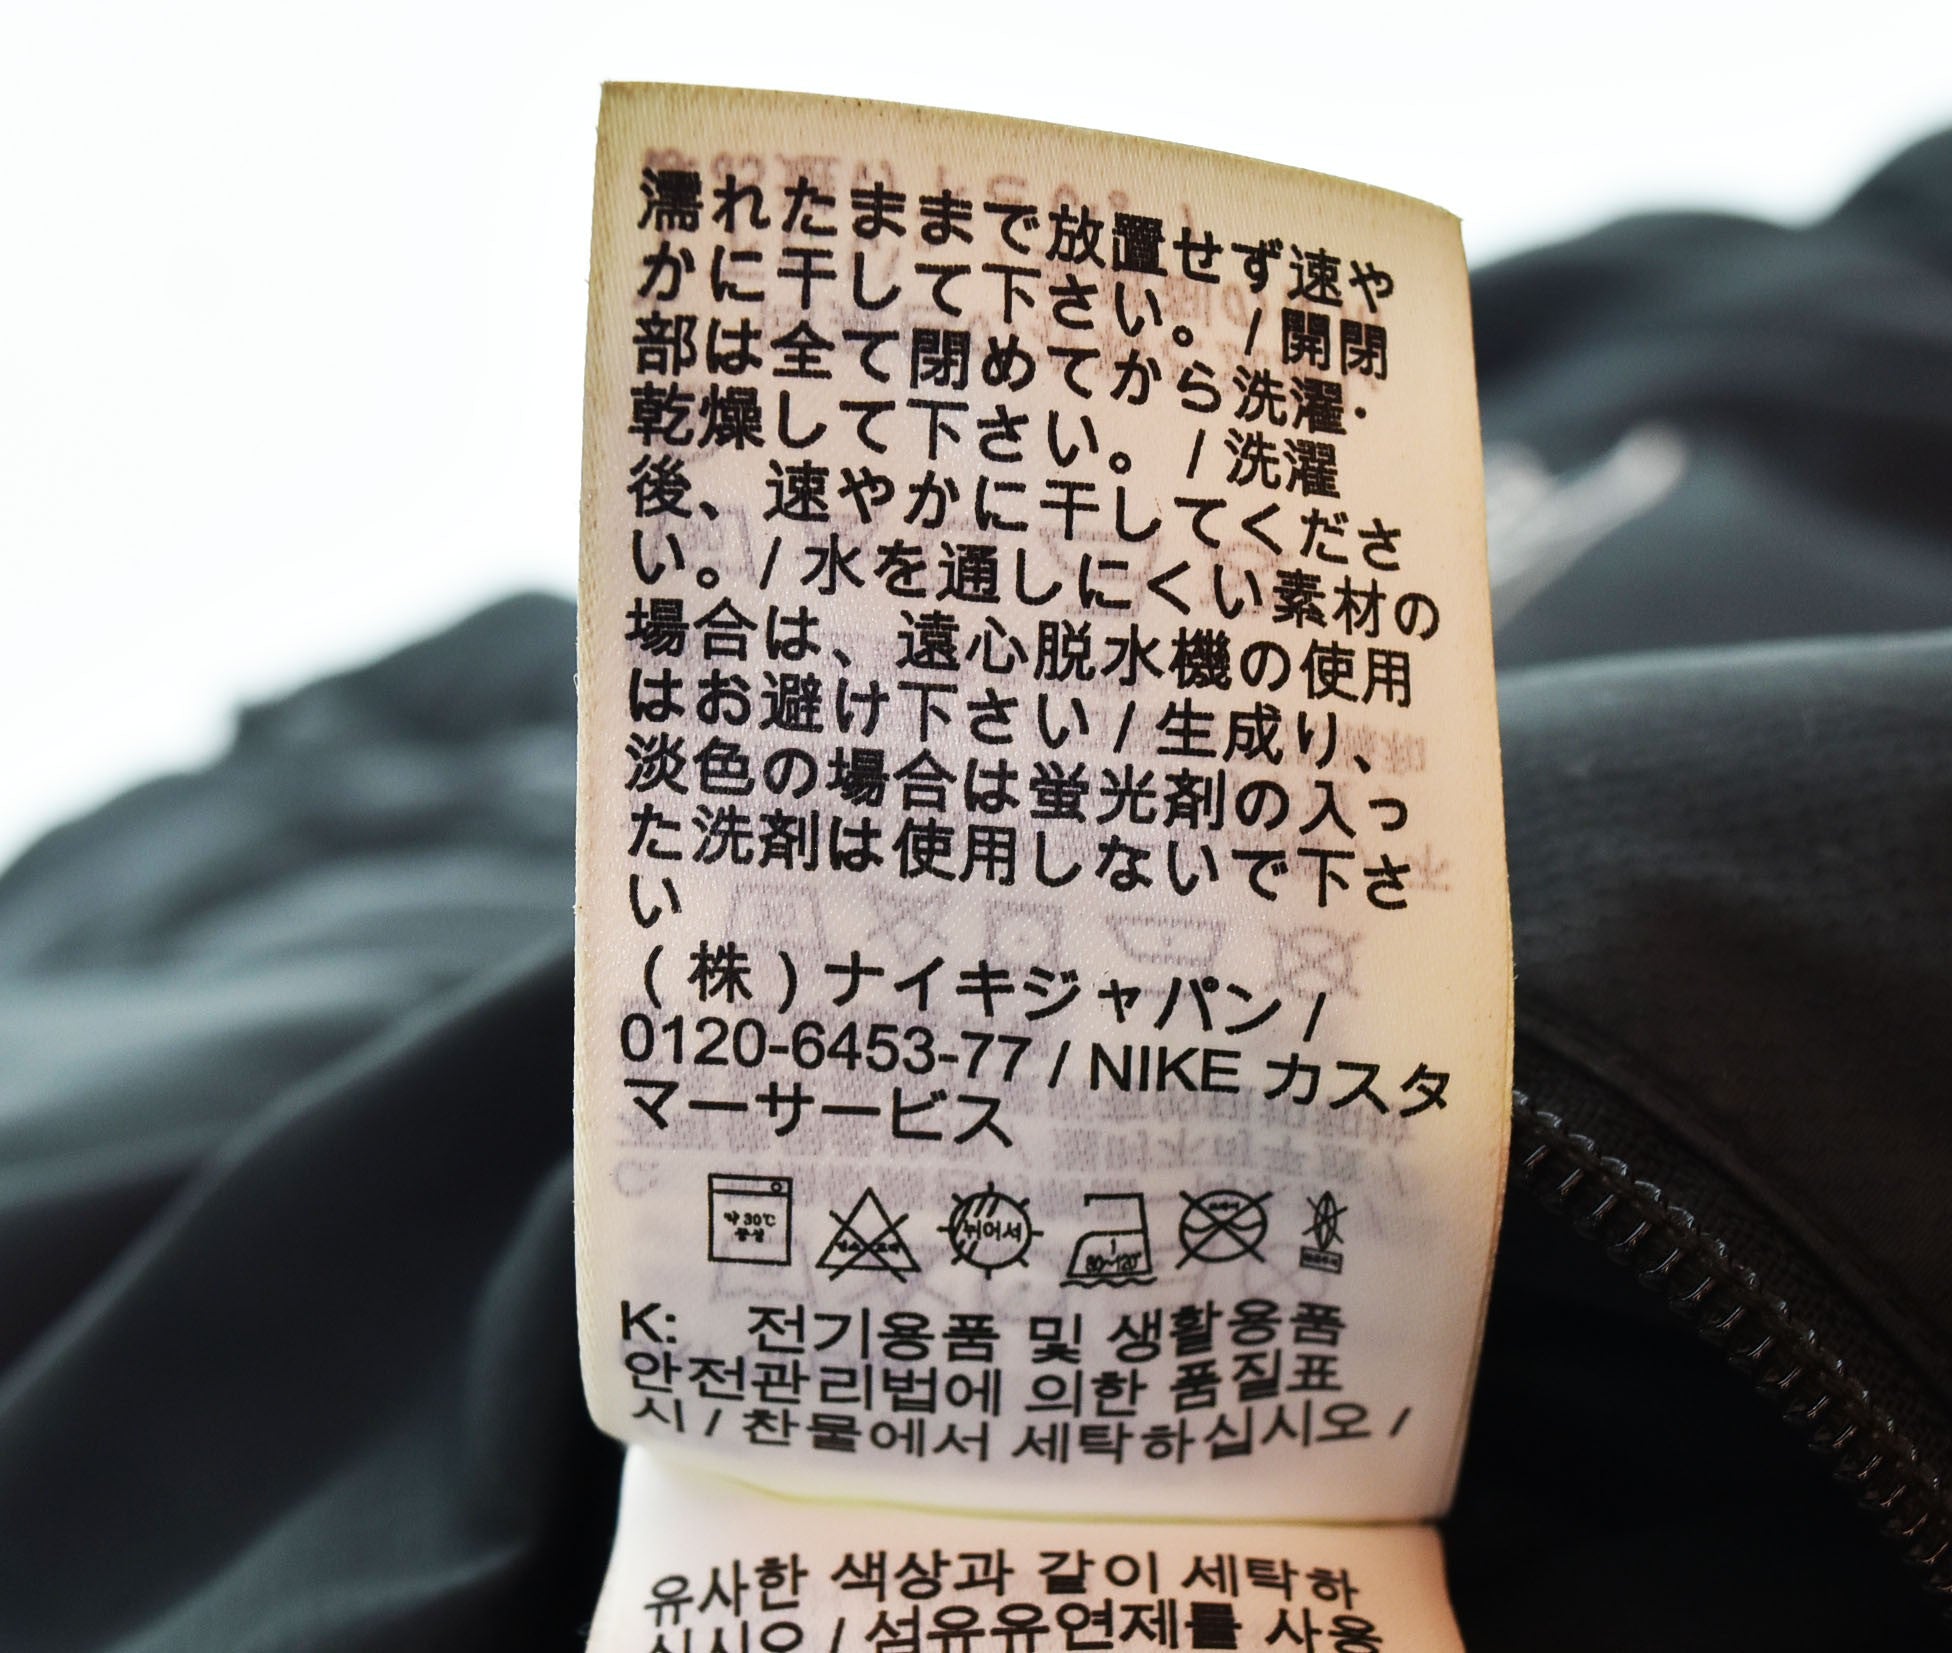 濡れたままで放置せず速や
かに干して下さい。 / 開閉
部は全て閉めてから洗濯・
乾燥して下さい。 / 洗濯
後、速やかに干してくださ
い。 / 水を通しにくい素材の
場合は、遠心脱水機の使用
はお避け下さい / 生成り、
淡色の場合は蛍光剤の入っ
た洗剤は使用しないで下さ
い
(株)ナイキジャパン /
0120-6453-77 / NIKE カスタ
マーサービス
약 30℃
중성
뉘어서
1
80~120°
K: 전기용품 및 생활용품
안전관리법에 의한 품질표
시 / 찬물에서 세탁하십시오 /
유사한 색상과 같이 세탁하
십시오 / 섬유유연제를 사용